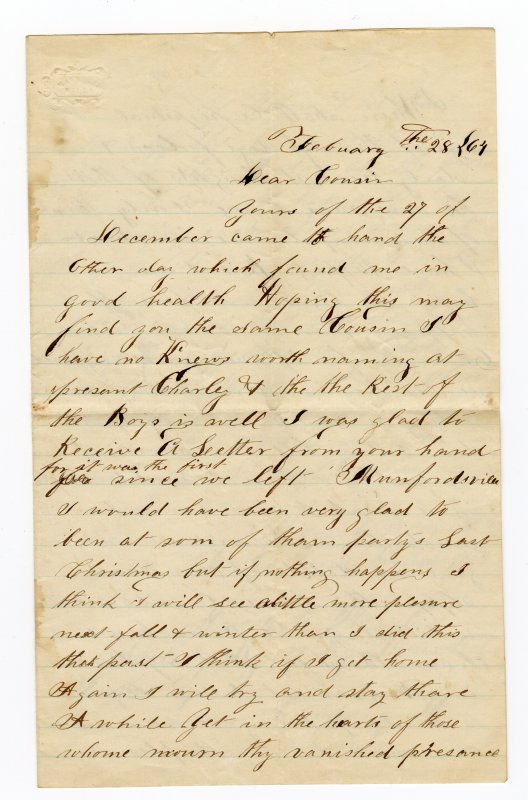 Febuary The 28 /64
Dear Cousin
Yours of the 27 of
December came to hand the
Other day which found me in
good health Hoping this may
find you the same Cousin I
have no Knews worth naming at
presant Charley & the the Rest of
the Boys is well I was glad to
Receive A Letter from your hand
for it was the first
since we left Munfordsville
I would have been very glad to
been at som of tham party's Last
Christmas but if nothing happens I
think I will see alittle more plesure
next fall & winter than I did this
that past I think if I get home
Again I will try and stay thare
A while Yet in the hearts of those
whome mourn thy vanished presance